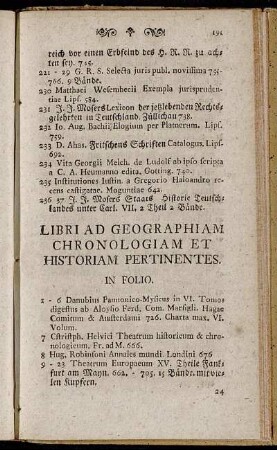 191
reich vor einen Erbfeind des H. R. R. zu achten
ten sey. 715.
221 - 29 G. R. S. Selecta juris publ. novissima 75-
766. 9 Bände.
230 Matthaei Wesembecii Exempla jurisprudentiae
tiae Lips. 584.
231 J. J. Mosers Lexicon der jeztlebenden Rechts-
gelehrten in Teutschland. Züllichau 738.
232 Io. Aug. Bachii, Elogium per Platnerum. Lips.
759.
233 D. Ahas. Fritschens Schriften Catalogus. Lips.
692.
234 Vita Georgii Melch. de Ludolf ab ipso scripta
a C. A. Heumanno edita, Gotting. 740.
235 Institutiones Iustin. a Gregorio Haloandro re-
cens castigatae. Moguntiae 642.
236 37 J. J. Mosers Staats Historie Teutsch-
landes unter Carl. VII. 2 Theil 2 Bände.
LIBRI AD GEOGRAPHIAM
CHRONOLOGIAM ET
HISTORIAM PERTINENTES.
IN FOLIO.
1 - 6 Danubius Pannonico-Mysicus in VI. Tomos
digestus ab Aloysio Ferd. Com. Marsigli. Hagae
Comitum & Amsterdami 726. Charta max. VI.
Volum.
7 Cristoph. Helvici Theatrum historicum & chro-
nologicum. Fr. ad M. 666.
8 Hug. Robinsoni Annales mundi. Londini 676
9 - 23 Theatrum Europaeum XV. Theile Fank-
furt am Mayn. 662. - 705. 15 Bände. mit vie-
len Kupfern.
24